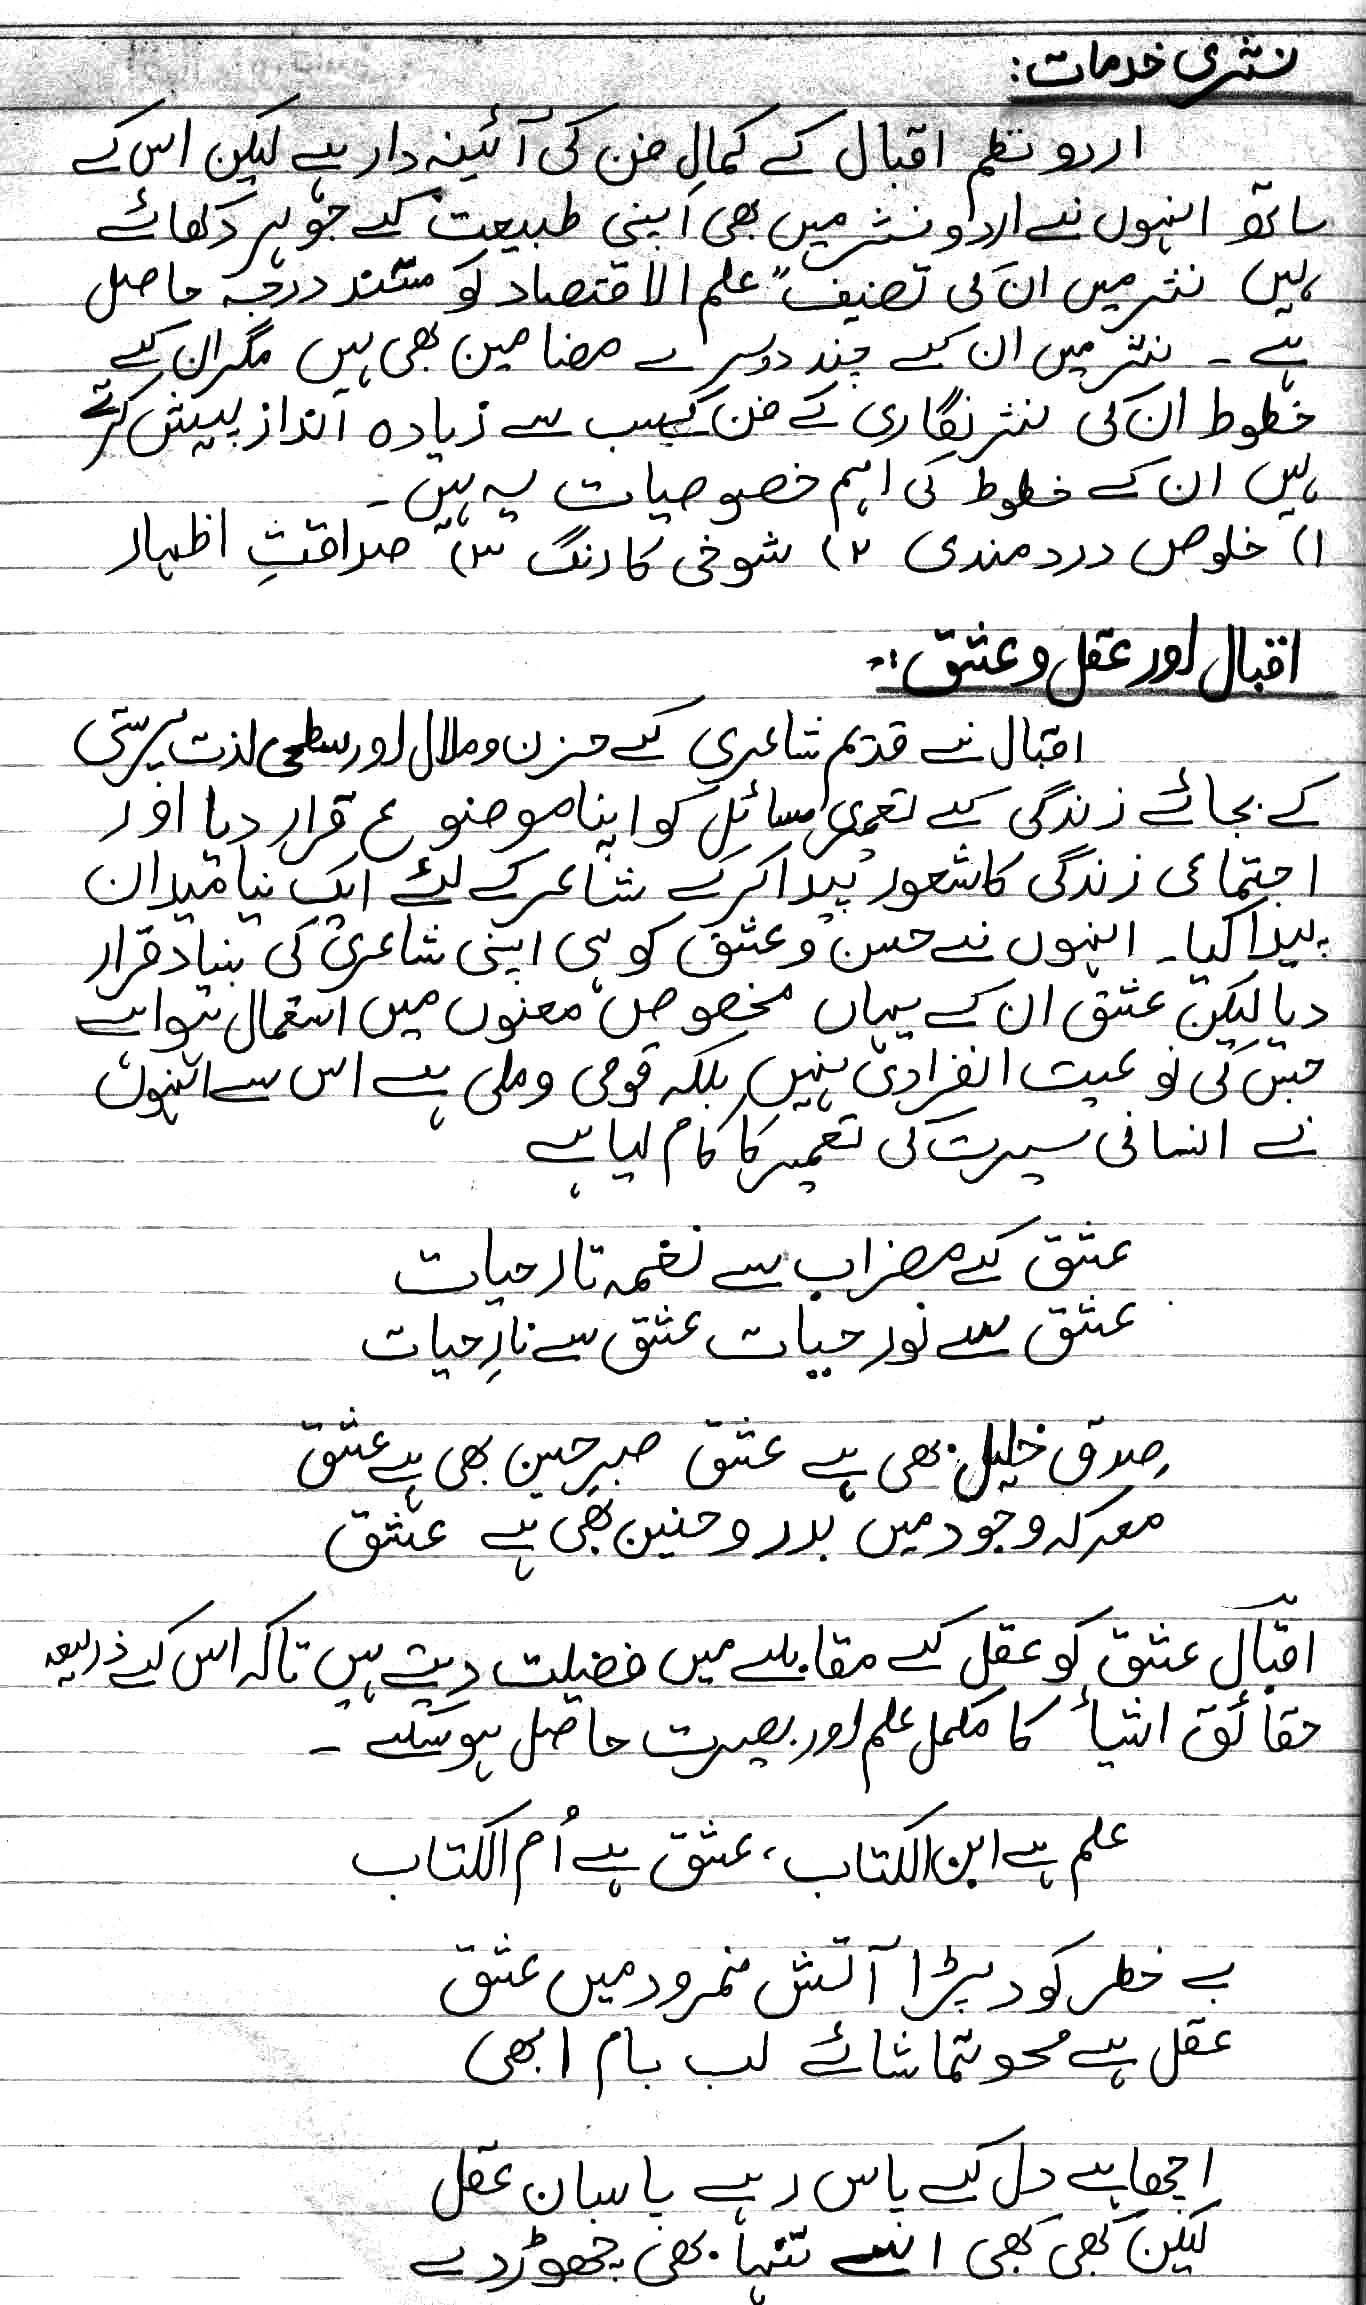 نثری خدمات:
اردو نظم اقبال کے کمالِ فن کی آئینہ دار ہے لیکن اس کے
ساتھ انہوں نے اردو نثر میں بھی اپنی طبیعت کے جوہر دکھائے
ہیں نثر میں ان کی تصنیف "علم الاقتصاد کو مستند درجہ حاصل
ہے ۔ نثر میں ان کے چند دوسرے مضامین بھی ہیں مگر ان کے
خطوط ان کی نثر نگاری کے فن کے سب سے زیادہ انداز پیش کرتے
ہیں ان کے خطوط کی اہم خصوصیات یہ ہیں ۔
۱) خلوص دردمندی ۲) شوخی کا رنگ ۳) صداقتِ اظہار
اقبال اور عقل و عشق :-
اقبال نے قدیم شاعری کے حزن و ملال اور سطحی لذت پرستی
کے بجائے زندگی کے تعمیری مسائل کو اپنا موضوع قرار دیا اور
اجتماعی زندگی کا شعور پیدا کرکے شاعر کے لئے ایک نیا میدان
پیدا کیا ۔ انہوں نے حسن و عشق کو ہی اپنی شاعری کی بنیاد قرار
دیا لیکن عشق ان کے یہاں مخصوص معنوں میں استعمال ہوا ہے
جس کی نوعیت انفرادی نہیں بلکہ قومی و ملی ہے اس سے انہوں
نے انسانی سیرت کی تعمیر کا کام لیا ہے
عشق کے مضراب سے نغمہ تار حیات
عشق سے نور حیات عشق سے نارِ حیات
صدق خلیل بھی ہے عشق صبرِ حسین بھی ہے عشق
معرکہ وجود میں بدر و حنین بھی ہے عشق
اقبال عشق کو عقل کے مقابلے میں فضیلت دیتے ہیں تاکہ اس کے ذریعہ
حقائق اشیاء کا مکمل علم اور بصیرت حاصل ہو سکے ۔
علم ہے ابن الکتاب، عشق ہے اُم الکتاب
بے خطر کود پڑا آتش نمرود میں عشق
عقل ہے محو تماشائے لب بام ابھی
اچھا ہے دل کے پاس رہے پاسبان عقل
لیکن کبھی کبھی اسے تنہا بھی چھوڑ دے